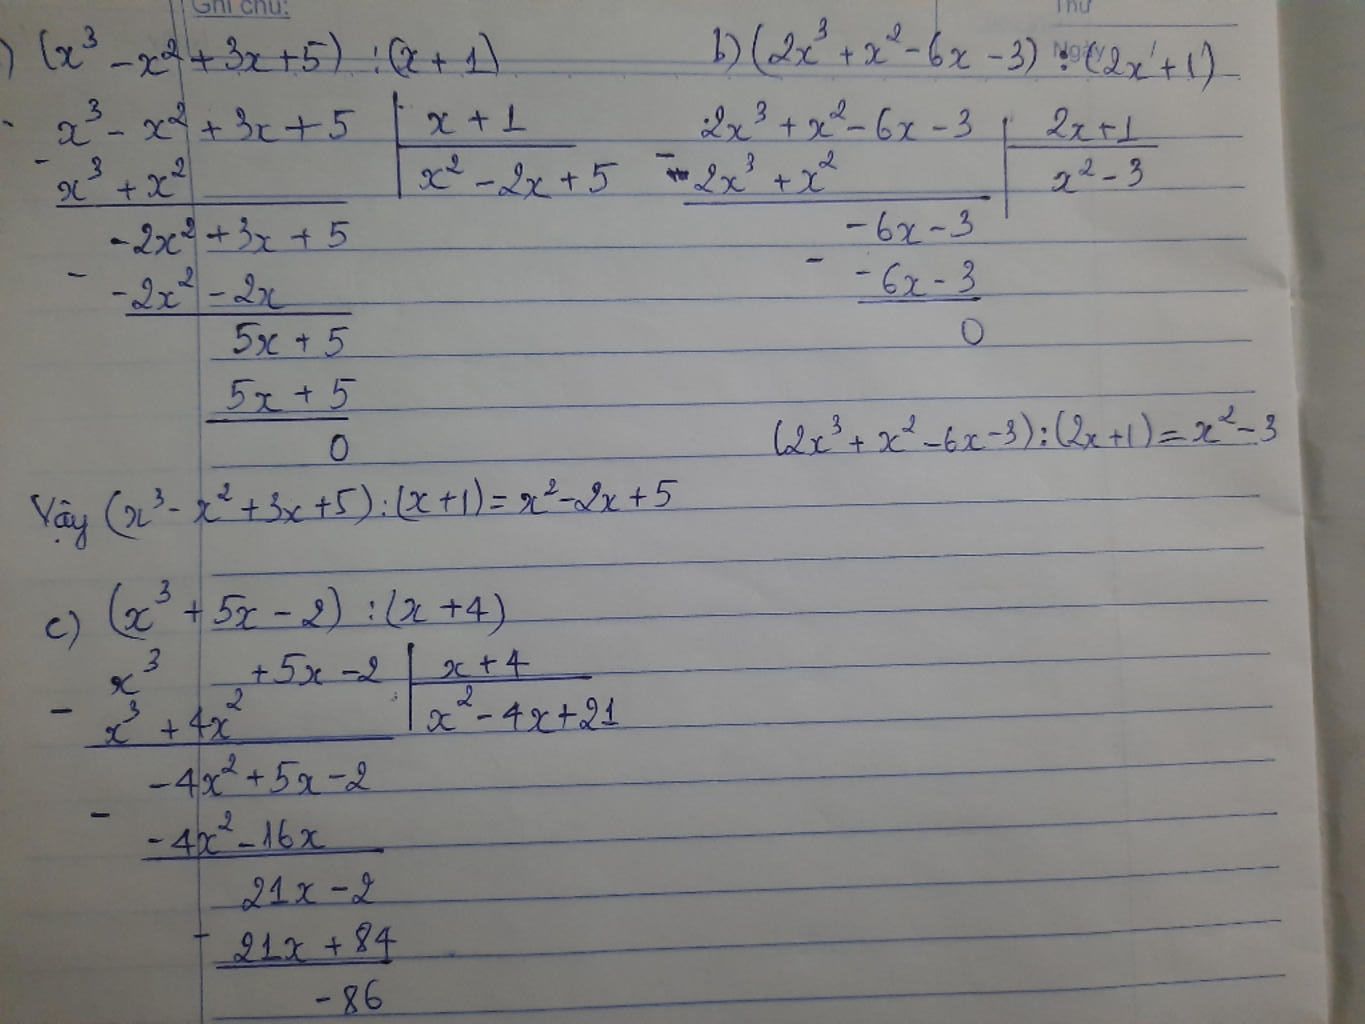 Ghi chú:
Thứ
Ngày
) (x³ - x² + 3x + 5) : (x + 1)
x³ - x² + 3x + 5 | x + 1
- x³ + x² | x² - 2x + 5
-2x² + 3x + 5
- -2x² - 2x
5x + 5
5x + 5
0
Vậy (x³ - x² + 3x + 5) : (x + 1) = x² - 2x + 5
b) (2x³ + x² - 6x - 3) : (2x + 1)
2x³ + x² - 6x - 3 | 2x + 1
- 2x³ + x² | x² - 3
-6x - 3
- -6x - 3
0
(2x³ + x² - 6x - 3) : (2x + 1) = x² - 3
c) (x³ + 5x - 2) : (x + 4)
x³ + 5x - 2 | x + 4
- x³ + 4x² | x² - 4x + 21
-4x² + 5x - 2
- -4x² - 16x
21x - 2
- 21x + 84
-86